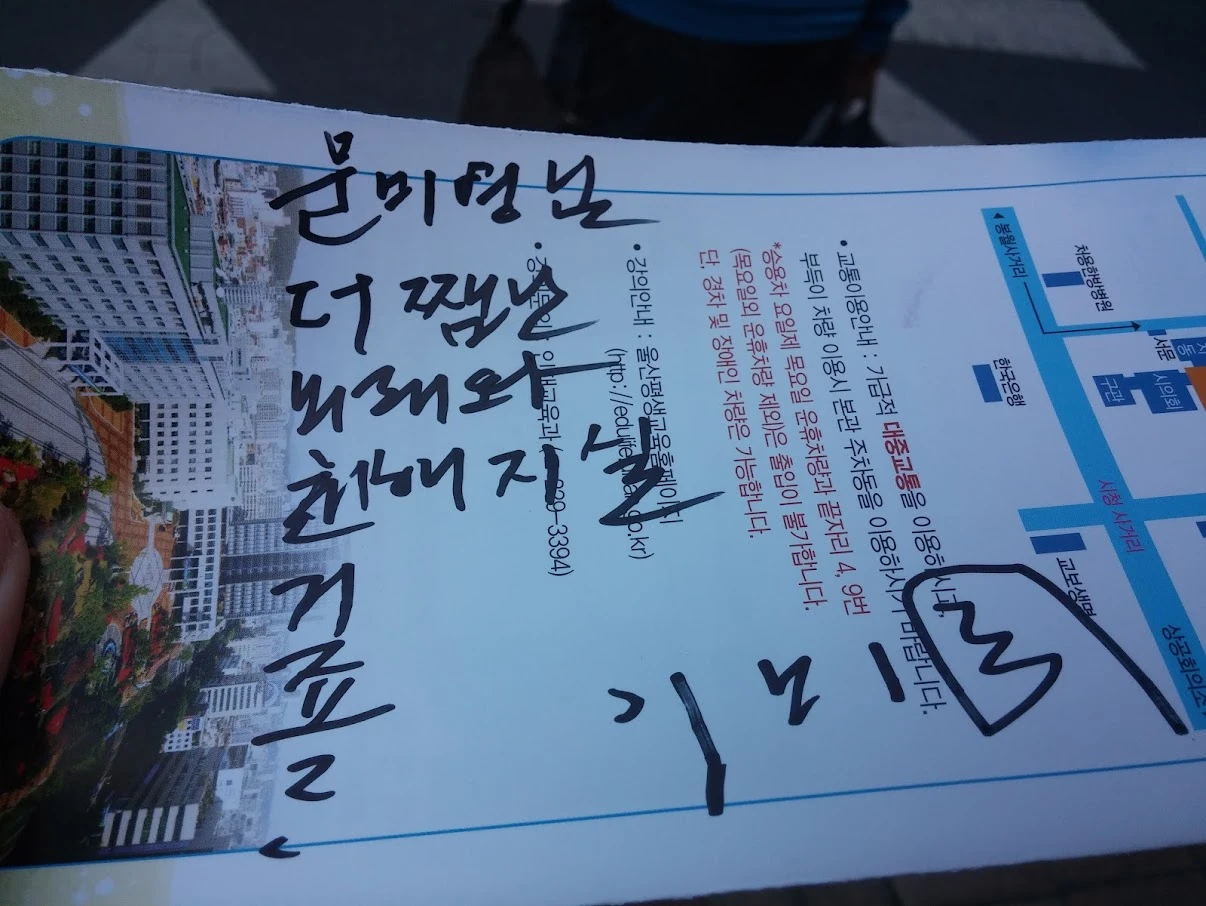 문미영님
더 쨈난
미래와
친해지실
거죠?
◀봉월사거리
차용한방병원
서문
시의회
구관
한국은행
시청 사거리
교보생명
상공회의소
• 교통이용안내 : 가급적 대중교통을 이용하시고,
부득이 차량 이용시 본관 주차동을 이용하시기 바랍니다.
*승용차 요일제 목요일 운휴차량과 끝자리 4, 9번
(목요일외 운휴차량 제외)은 출입이 불가합니다.
단, 경차 및 장애인 차량은 가능합니다.
• 강의안내 : 울산평생교육홈페이지
(http://edulife.ulsan.go.kr)
교육과( 229-3394)